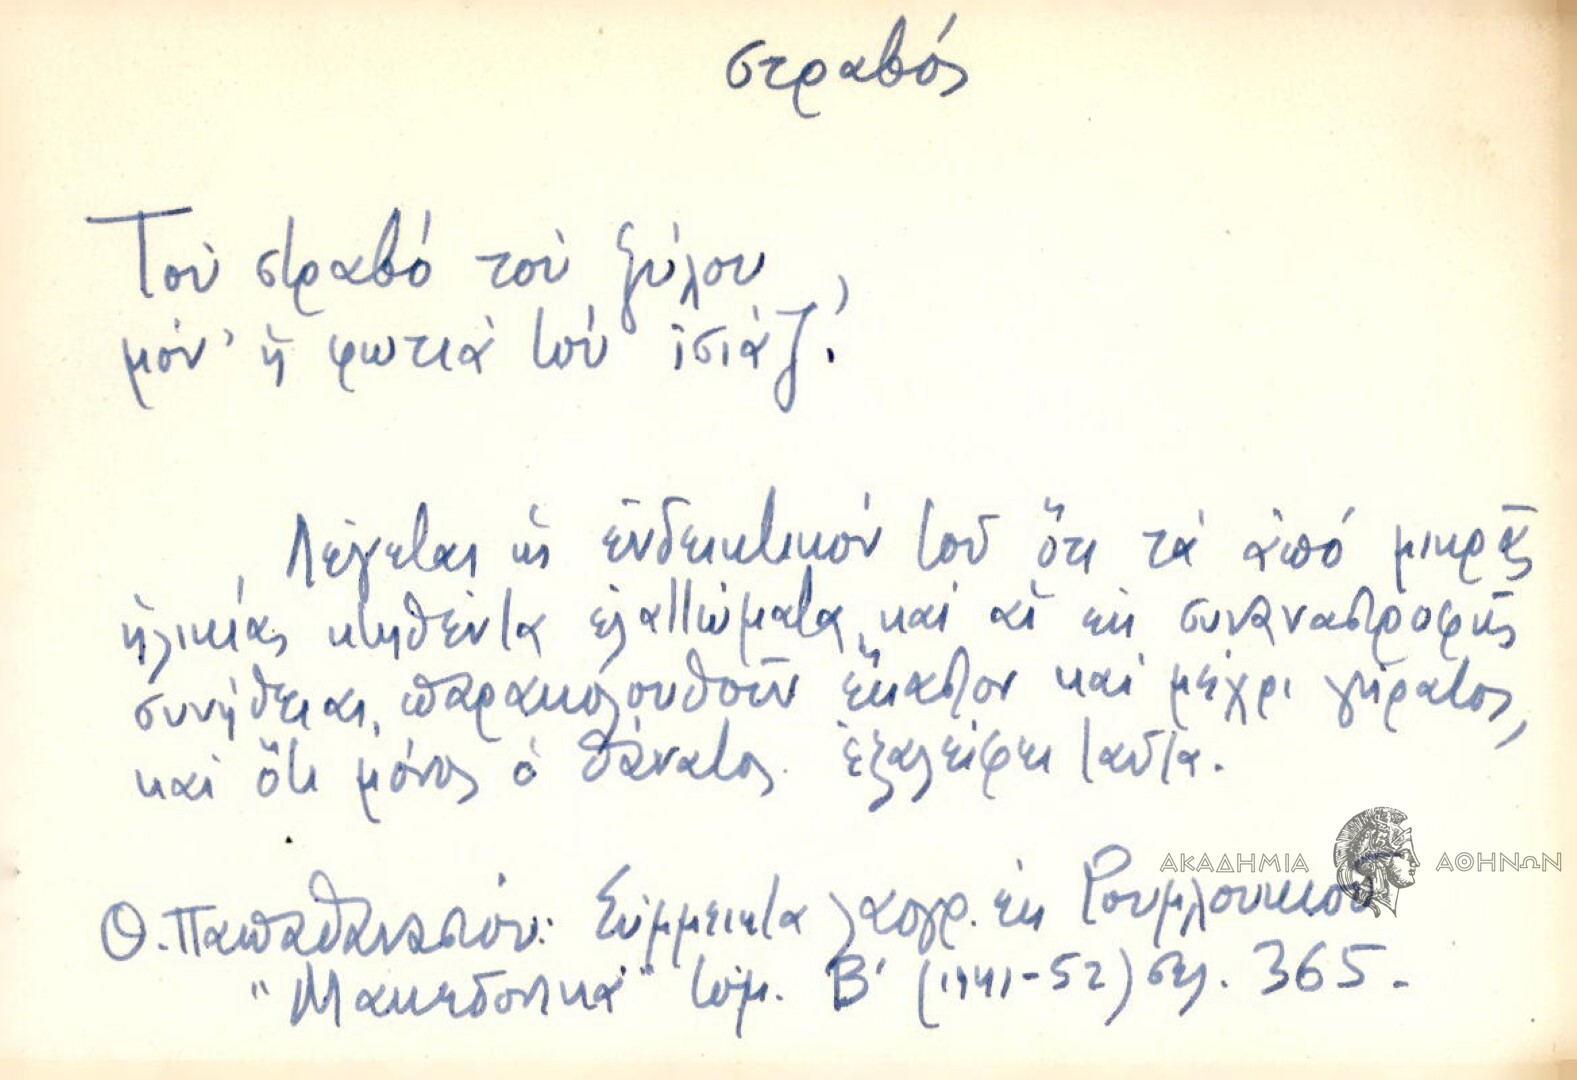 στραβός
Τοὺ στραβό τοὺ ξύλου
μόν' ἡ φωτιὰ τοὺ ἰσιάζ'.
Λέγεται ὡς ἐνδεικτικόν τοῦ ὅτι τὰ ἀπό μικρᾶς
ἡλικίας κτηθέντα ἐλαττώματα, καὶ αἱ ἐκ συναναστροφῆς
συνήθειαι, παρακολουθοῦν ἕκαστον καὶ μέχρι γήρατος,
καὶ ὅτι μόνος ὁ θάνατος ἐξαλείφει ταῦτα.
Θ. Παπαθανασίου: Σύμμεικτα λαογρ. ἐκ Ρουμλουκιοῦ
"Μακεδονικά" τόμ. Β' (1941-52) σελ. 365.-
ΑΚΑΔΗΜΙΑ ΑΘΗΝΩΝ